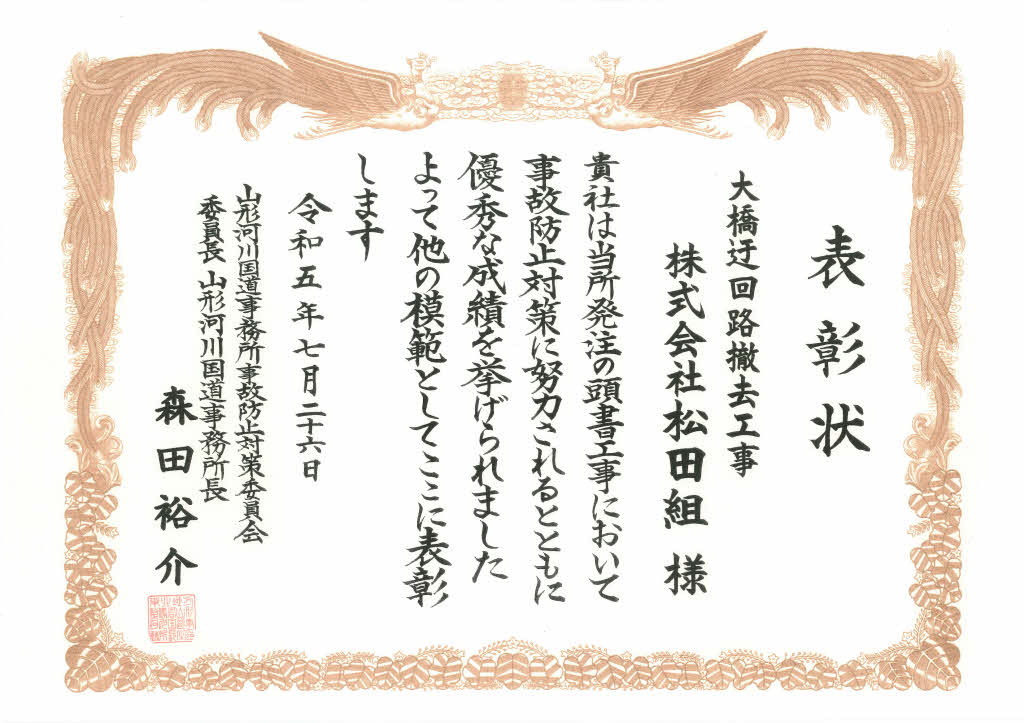 表彰状
大橋迂回路撤去工事
株式会社松田組 様
貴社は当所発注の頭書工事において
事故防止対策に努力されるとともに
優秀な成績を挙げられました
よって他の模範としてここに表彰
します
令和五年七月二十六日
山形河川国道事務所事故防止対策委員会
委員長 山形河川国道事務所長
森田裕介